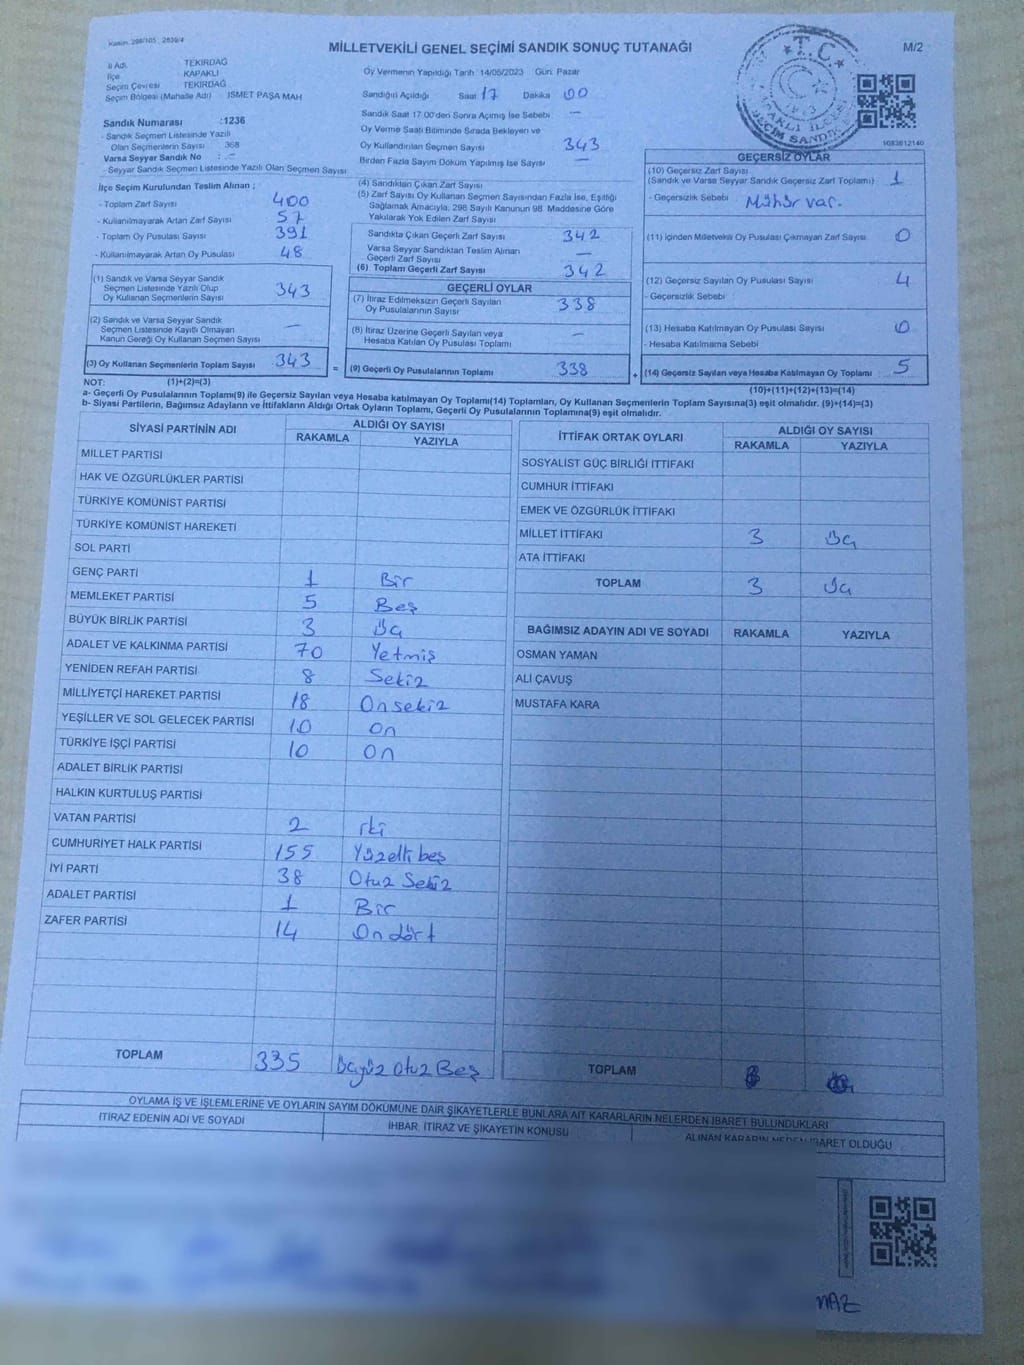 Kanun: 298/105 : 2839/4
MİLLETVEKİLİ GENEL SEÇİMİ SANDIK SONUÇ TUTANAĞI
M/2
T.C.
KAPAKLI İLÇESİ
SEÇİM SANDIK
1083612140
İl Adı TEKİRDAĞ
İlçe KAPAKLI
Seçim Çevresi TEKİRDAĞ
Seçim Bölgesi (Mahalle Adı) : İSMET PAŞA MAH
Sandık Numarası :1236
- Sandık Seçmen Listesinde Yazılı
Olan Seçmenlerin Sayısı 368
Varsa Seyyar Sandık No : -
- Seyyar Sandık Seçmen Listesinde Yazılı Olan Seçmen Sayısı
İlçe Seçim Kurulundan Teslim Alınan ;
- Toplam Zarf Sayısı 400
- Kullanılmayarak Artan Zarf Sayısı 57
- Toplam Oy Pusulası Sayısı 391
- Kullanılmayarak Artan Oy Pusulası 48
(1) Sandık ve Varsa Seyyar Sandık
Seçmen Listesinde Yazılı Olup
Oy Kullanan Seçmenlerin Sayısı 343
(2) Sandık ve Varsa Seyyar Sandık
Seçmen Listesinde Kayıtlı Olmayan
Kanun Gereği Oy Kullanan Seçmen Sayısı —
(3) Oy Kullanan Seçmenlerin Toplam Sayısı 343
Oy Vermenin Yapıldığı Tarih : 14/05/2023 Gün: Pazar
Sandığın Açıldığı Saat 17 Dakika 00
Sandık Saat 17:00'den Sonra Açılmış İse Sebebi —
Oy Verme Saati Bitiminde Sırada Bekleyen ve
Oy Kullandırılan Seçmen Sayısı 343
Birden Fazla Sayım Döküm Yapılmış İse Sayısı —
(4) Sandıktan Çıkan Zarf Sayısı
(5) Zarf Sayısı Oy Kullanan Seçmen Sayısından Fazla İse, Eşitliği
Sağlamak Amacıyla, 298 Sayılı Kanunun 98. Maddesine Göre
Yakılarak Yok Edilen Zarf Sayısı
Sandıkta Çıkan Geçerli Zarf Sayısı 342
Varsa Seyyar Sandıktan Teslim Alınan
Geçerli Zarf Sayısı —
(6) Toplam Geçerli Zarf Sayısı 342
GEÇERLİ OYLAR
(7) İtiraz Edilmeksizin Geçerli Sayılan
Oy Pusulalarının Sayısı 338
(8) İtiraz Üzerine Geçerli Sayılan veya
Hesaba Katılan Oy Pusulası Toplamı —
= (9) Geçerli Oy Pusulalarının Toplamı 338
GEÇERSİZ OYLAR
(10) Geçersiz Zarf Sayısı
(Sandık ve Varsa Seyyar Sandık Geçersiz Zarf Toplamı) 1
- Geçersizlik Sebebi Mühür var.
(11) İçinden Milletvekili Oy Pusulası Çıkmayan Zarf Sayısı 0
(12) Geçersiz Sayılan Oy Pusulası Sayısı 4
- Geçersizlik Sebebi :
(13) Hesaba Katılmayan Oy Pusulası Sayısı 0
- Hesaba Katılmama Sebebi
+ (14) Geçersiz Sayılan veya Hesaba Katılmayan Oy Toplamı 5
NOT: (1)+(2)=(3)
(10)+(11)+(12)+(13)=(14)
a- Geçerli Oy Pusulalarının Toplamı(9) ile Geçersiz Sayılan veya Hesaba katılmayan Oy Toplamı(14) Toplamları, Oy Kullanan Seçmenlerin Toplam Sayısına(3) eşit olmalıdır. (9)+(14)=(3)
b- Siyasi Partilerin, Bağımsız Adayların ve İttifakların Aldığı Ortak Oyların Toplamı, Geçerli Oy Pusulalarının Toplamına(9) eşit olmalıdır.
SİYASİ PARTİNİN ADI
ALDIĞI OY SAYISI
RAKAMLA YAZIYLA
MİLLET PARTİSİ
HAK VE ÖZGÜRLÜKLER PARTİSİ
TÜRKİYE KOMÜNİST PARTİSİ
TÜRKİYE KOMÜNİST HAREKETİ
SOL PARTİ
GENÇ PARTİ 1 Bir
MEMLEKET PARTİSİ 5 Beş
BÜYÜK BİRLİK PARTİSİ 3 Üç
ADALET VE KALKINMA PARTİSİ 70 Yetmiş
YENİDEN REFAH PARTİSİ 8 Sekiz
MİLLİYETÇİ HAREKET PARTİSİ 18 Onsekiz
YEŞİLLER VE SOL GELECEK PARTİSİ 10 On
TÜRKİYE İŞÇİ PARTİSİ 10 On
ADALET BİRLİK PARTİSİ
HALKIN KURTULUŞ PARTİSİ
VATAN PARTİSİ 2 İki
CUMHURİYET HALK PARTİSİ 155 Yüzelli beş
İYİ PARTİ 38 Otuz Sekiz
ADALET PARTİSİ 1 Bir
ZAFER PARTİSİ 14 On dört
TOPLAM 335 Üçyüz Otuz Beş
İTTİFAK ORTAK OYLARI
ALDIĞI OY SAYISI
RAKAMLA YAZIYLA
SOSYALİST GÜÇ BİRLİĞİ İTTİFAKI
CUMHUR İTTİFAKI
EMEK VE ÖZGÜRLÜK İTTİFAKI
MİLLET İTTİFAKI 3 Üç
ATA İTTİFAKI
TOPLAM 3 Üç
BAĞIMSIZ ADAYIN ADI VE SOYADI RAKAMLA YAZIYLA
OSMAN YAMAN
ALİ ÇAVUŞ
MUSTAFA KARA
TOPLAM
OYLAMA İŞ VE İŞLEMLERİNE VE OYLARIN SAYIM DÖKÜMÜNE DAİR ŞİKAYETLERLE BUNLARA AİT KARARLARIN NELERDEN İBARET BULUNDUKLARI
İTİRAZ EDENİN ADI VE SOYADI
İHBAR, İTİRAZ VE ŞİKAYETİN KONUSU
ALINAN KARARIN NEDEN İBARET OLDUĞU